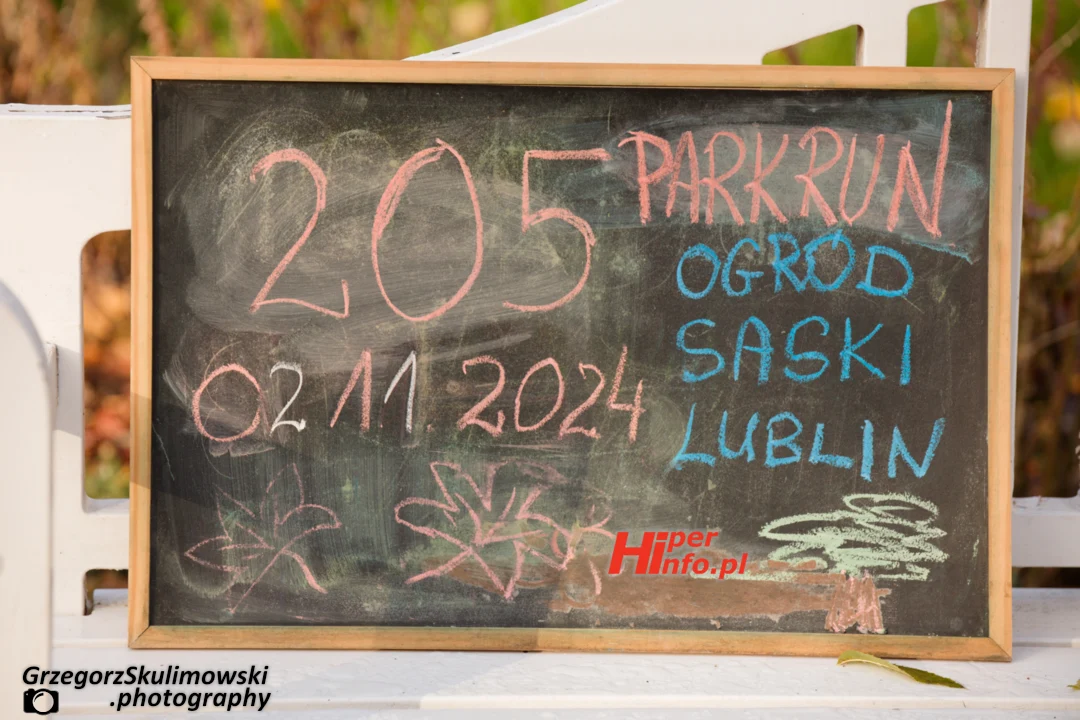 205 PARKRUN
OGRÓD
SASKI
02 11 2024
LUBLIN
HiperInfo.pl
GrzegorzSkulimowski
.photography